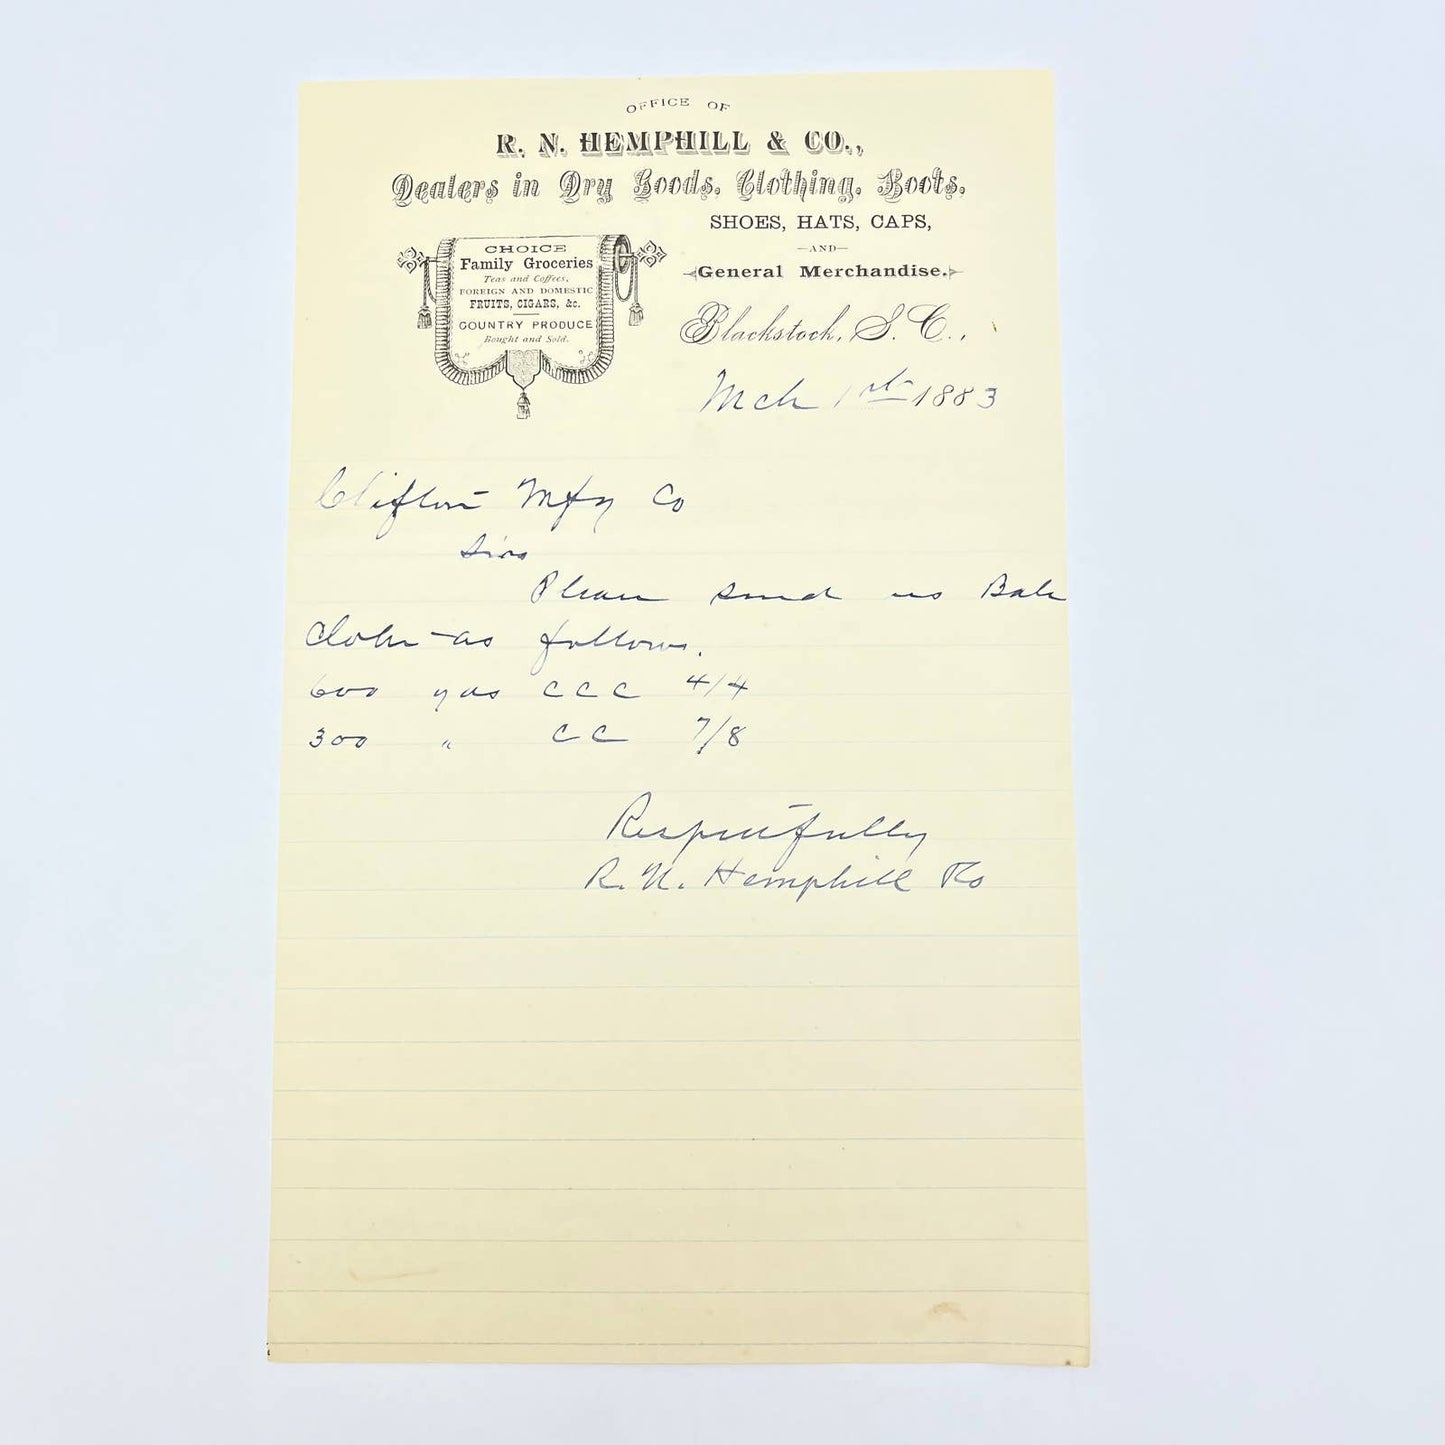 OFFICE OF
R. N. HEMPHILL & CO.,
Dealers in Dry Goods, Clothing, Boots,
SHOES, HATS, CAPS,
—AND—
General Merchandise.
CHOICE
Family Groceries
Teas and Coffees,
FOREIGN AND DOMESTIC
FRUITS, CIGARS, &c.
COUNTRY PRODUCE
Bought and Sold.
Blackstock, S. C.,
Mch 1st 1883
Clifton Mfg Co
Sirs
Please send us Bale
Cloth as follows.
600 yds CCC 4/4
300 " CC 7/8
Respectfully
R. N. Hemphill & Co